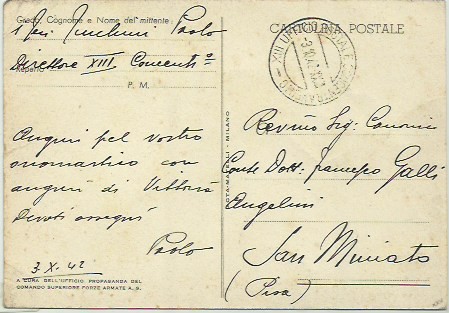 Grado, Cognome e Nome del mittente
Paolo
Direttore XIII. Concent.º
Reparto
P. M.
Auguri pel vostro
onomastico con
auguri di Vittoria
Devoti ossequi
Paolo
3. X. 42
A CURA DELL'UFFICIO PROPAGANDA DEL
COMANDO SUPERIORE FORZE ARMATE A. S.
MILANO
CARTOLINA POSTALE
XIII UFFICIO
Rev.mo Sig: Canonico
Conte Dott: Francesco Galli
Angelini
San Miniato
(Pisa)